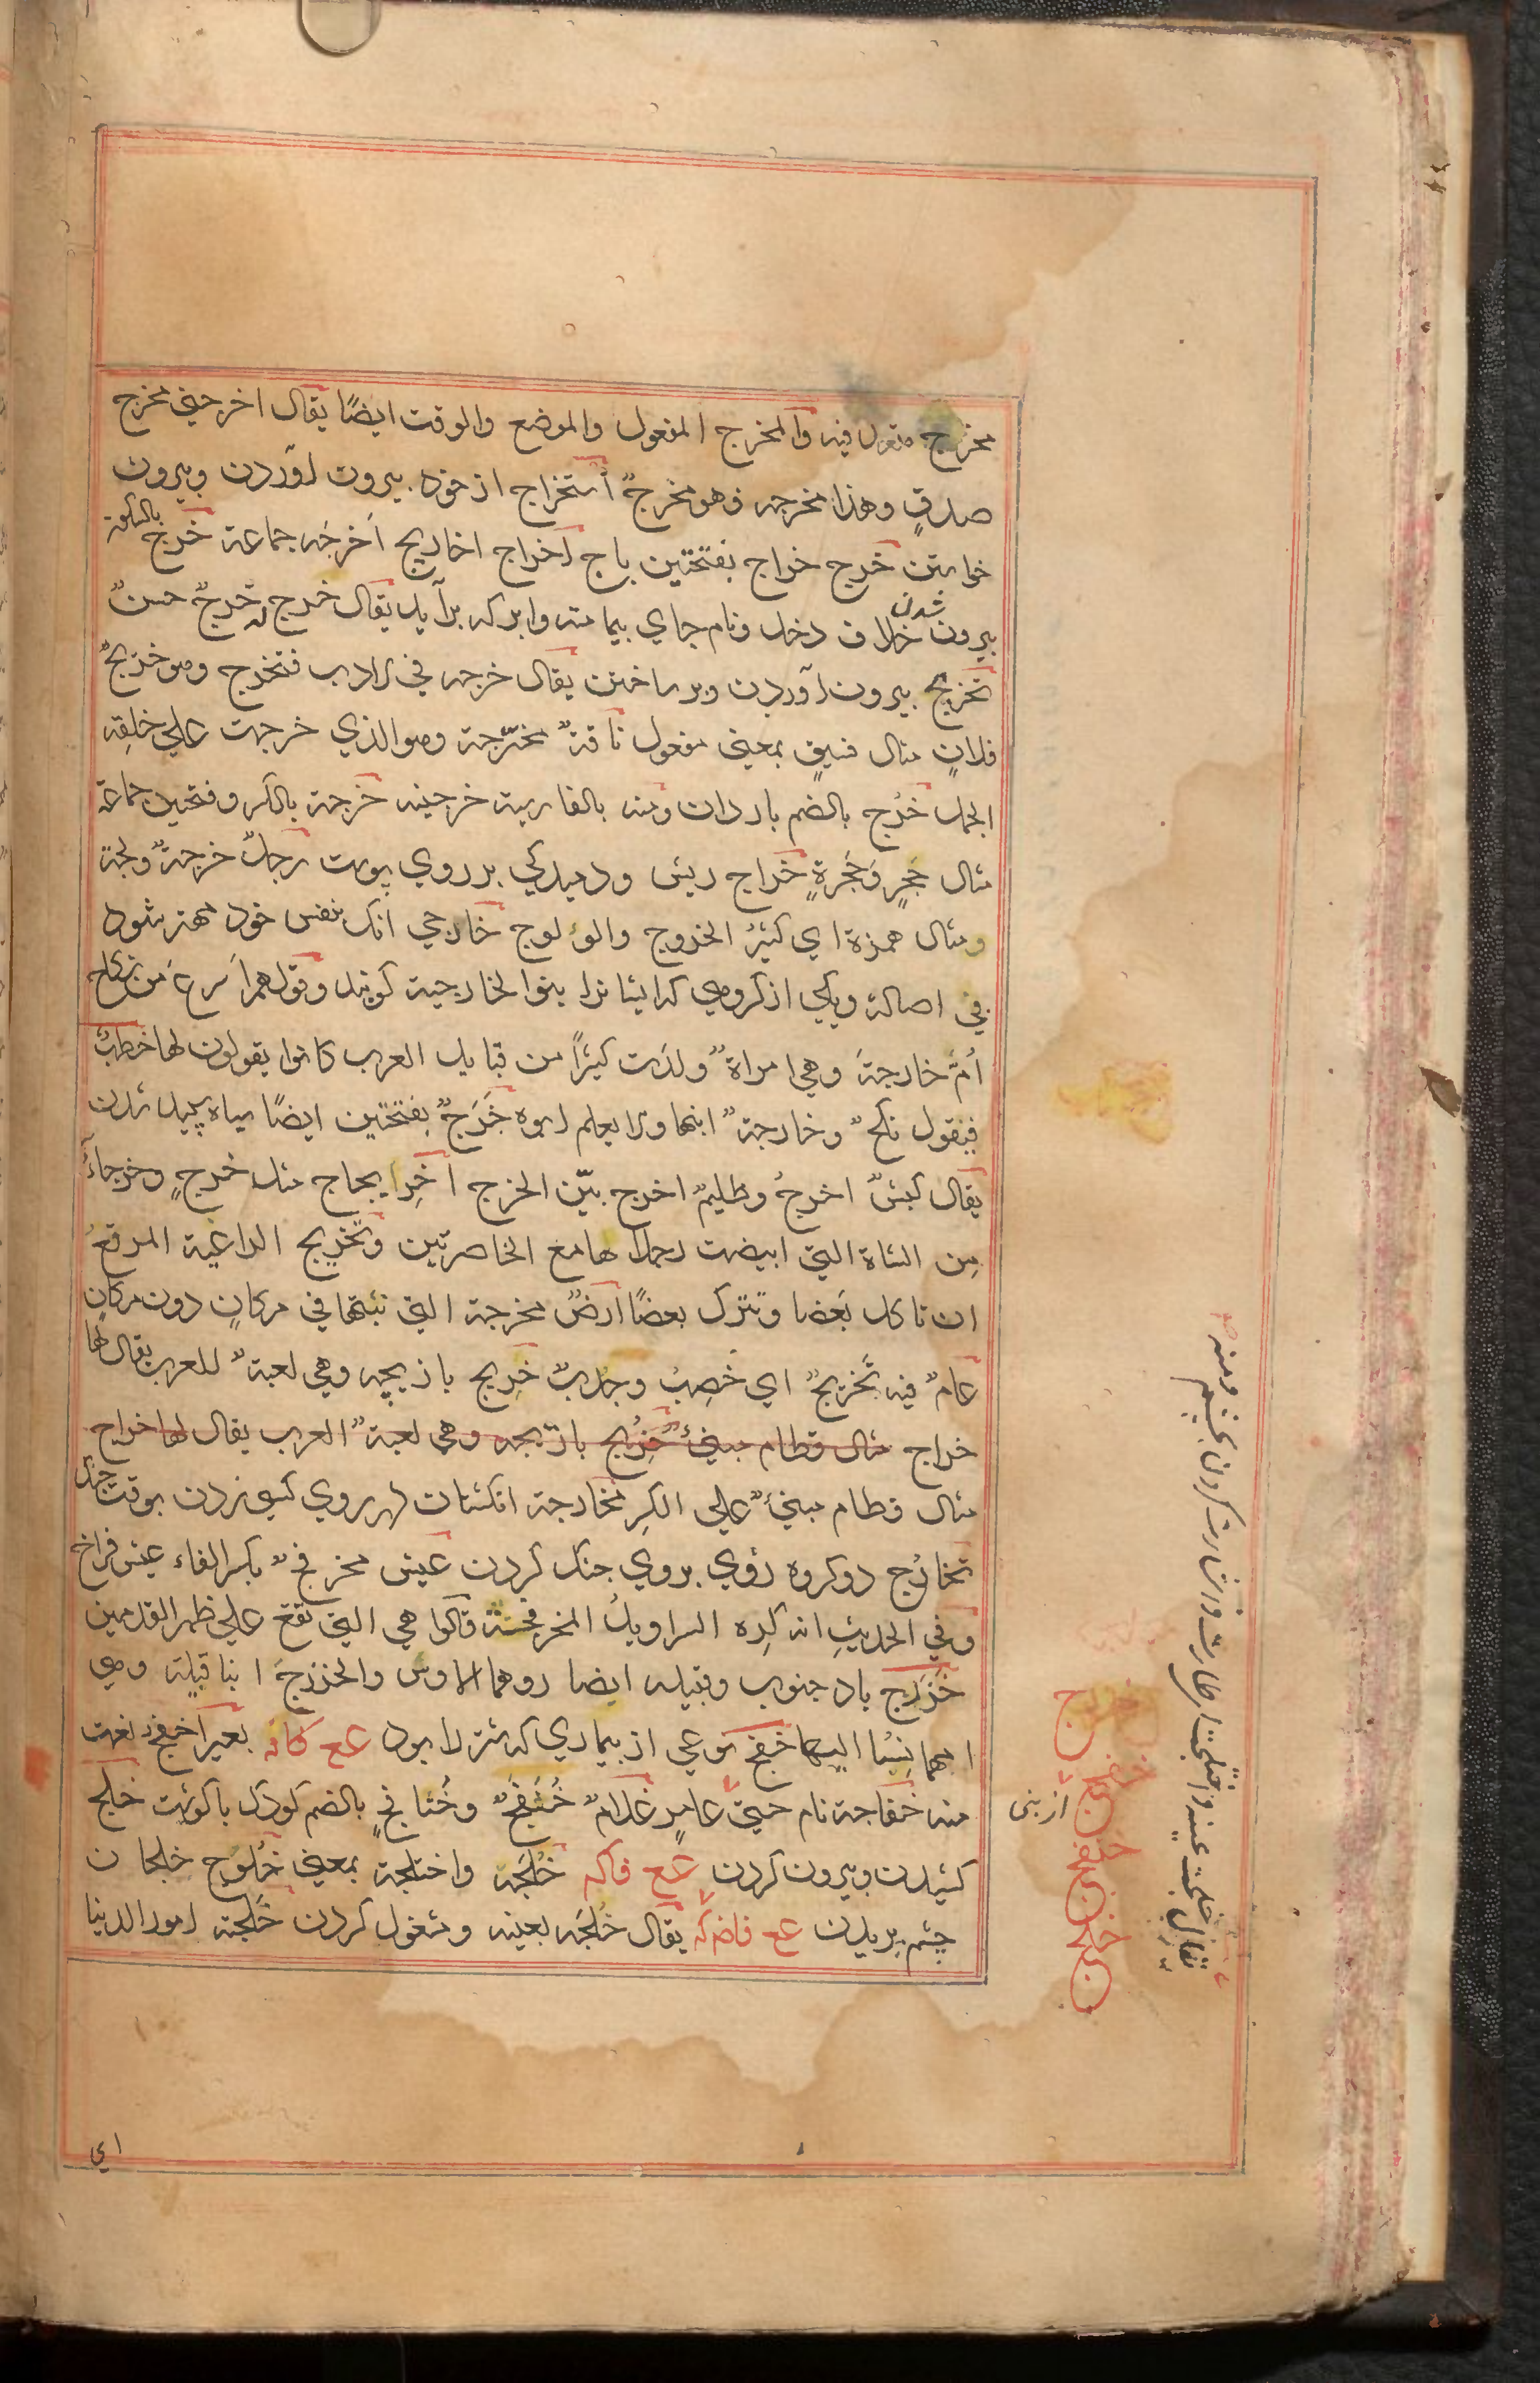 مخرج مفعول فيه والمخرج المفعول والموضع والوقت ايضًا يقال اخرجني مخرج
صدقٍ وهذا مخرجه وهو مخرجٌ استخراج از خود بيرون آوردن وبيرون
خواستن خرج خراج بفتحتين باج اخراج اخاريج اخرجه جماعة خرج بالسكون
بيرون شدن خلاف دخل ونام جاي بيمامه وابر كه برآيد يقال خرج له خرجٌ حسنٌ
تخريج بيرون آوردن وبر ساختن يقال خرجه في الادب فتخرج وهو خريجٌ
فلانٍ مثال فنيقٍ بمعنى مفعول ناقةٌ مخترجة وهو الذي خرجت على خلقة
الجمل خرج بالضم باردان ومنه بالفارسية خرجينه خرجة بالكسر وفتحتين جماعة
مثال جُحرٍ وجُحرةٍ خراج ريش ودميدكي بر روي پوست رجلٌ خرجةٌ ولجة
ومثال همزة اي كثيرُ الخروج والولوج خارجي آنك بنفس خود مهتر شود
بي اصالة ويكي از كروهي كه ايشانرا بنوا الخارجية كويند وقولهم اسرعُ من نكاح
اُمّ خارجةَ وهي امراةٌ ولدت كثيرًا من قبايل العرب كانوا يقولون لها خطبٌ
فيقول نكحٌ وخارجةٌ ابنها ولا يعلم ابوه خَرَجٌ بفتحتين ايضًا سياه سپيد شدن
يقال كبشٌ اخرجُ وظليمٌ اخرج بيّن الخرج اخرِيجاج مثله خرجٍ وخرجاءُ
مِن الشاة التي ابيضت رجلاها مع الخاصرتين وتخريج الراعية المرتعُ
ان تاكل بعضا وتترك بعضًا ارضٌ مخرجة التي نبتها في مكانٍ دون مكانٍ
عامٌ فيه تخريجٌ اي خصِبٌ وجدبٌ خريج بازيچه وهي لعبةٌ للعرب يقال لها
خراج مثال قطام مبنيٌ خريج بازيچه وهي لعبةٌ العرب يقال لها خراج
مثال قطام مبنيٌ على الكسر مخارجة انكشتان بهر روي كسي زدن بوقت جنك
تخارُج دوكروه روي بروي جنك كردن عيش مخرفجٌ بكسر الفاء عيش فراخ
وفي الحديث انه كرِه السراويلُ المخرفجة قالوا هي التي تقع على ظهر القدمين
خَزرَج باد جنوب وقبيله ايضا وهما الاوس والخزرج ابنا قيلة وهي
امهما نُسبا اليها خفج نوعي از بيماري كه شتر را بود عع كانه بعيرٌ اخفجٌ نعت
منه خفاجة نام حيّ عامرٍ غلامٌ خُنفجٌ وخُنافجٌ بالضم كودك باكوشت خلج
كشيدن وبيرون كردن عع فاكه خلجَه واختلجة بمعنى خلوج خلجان
چشم پريدن عع فاضركه يقال خلجَه بعينه ومشغول كردن خلجته امور الدنيا
از بنى
خزرج
خفج
خلج
يقال خلجت عينه واختلجت اي طارت واشارت كردن بچشم ومنه
اي